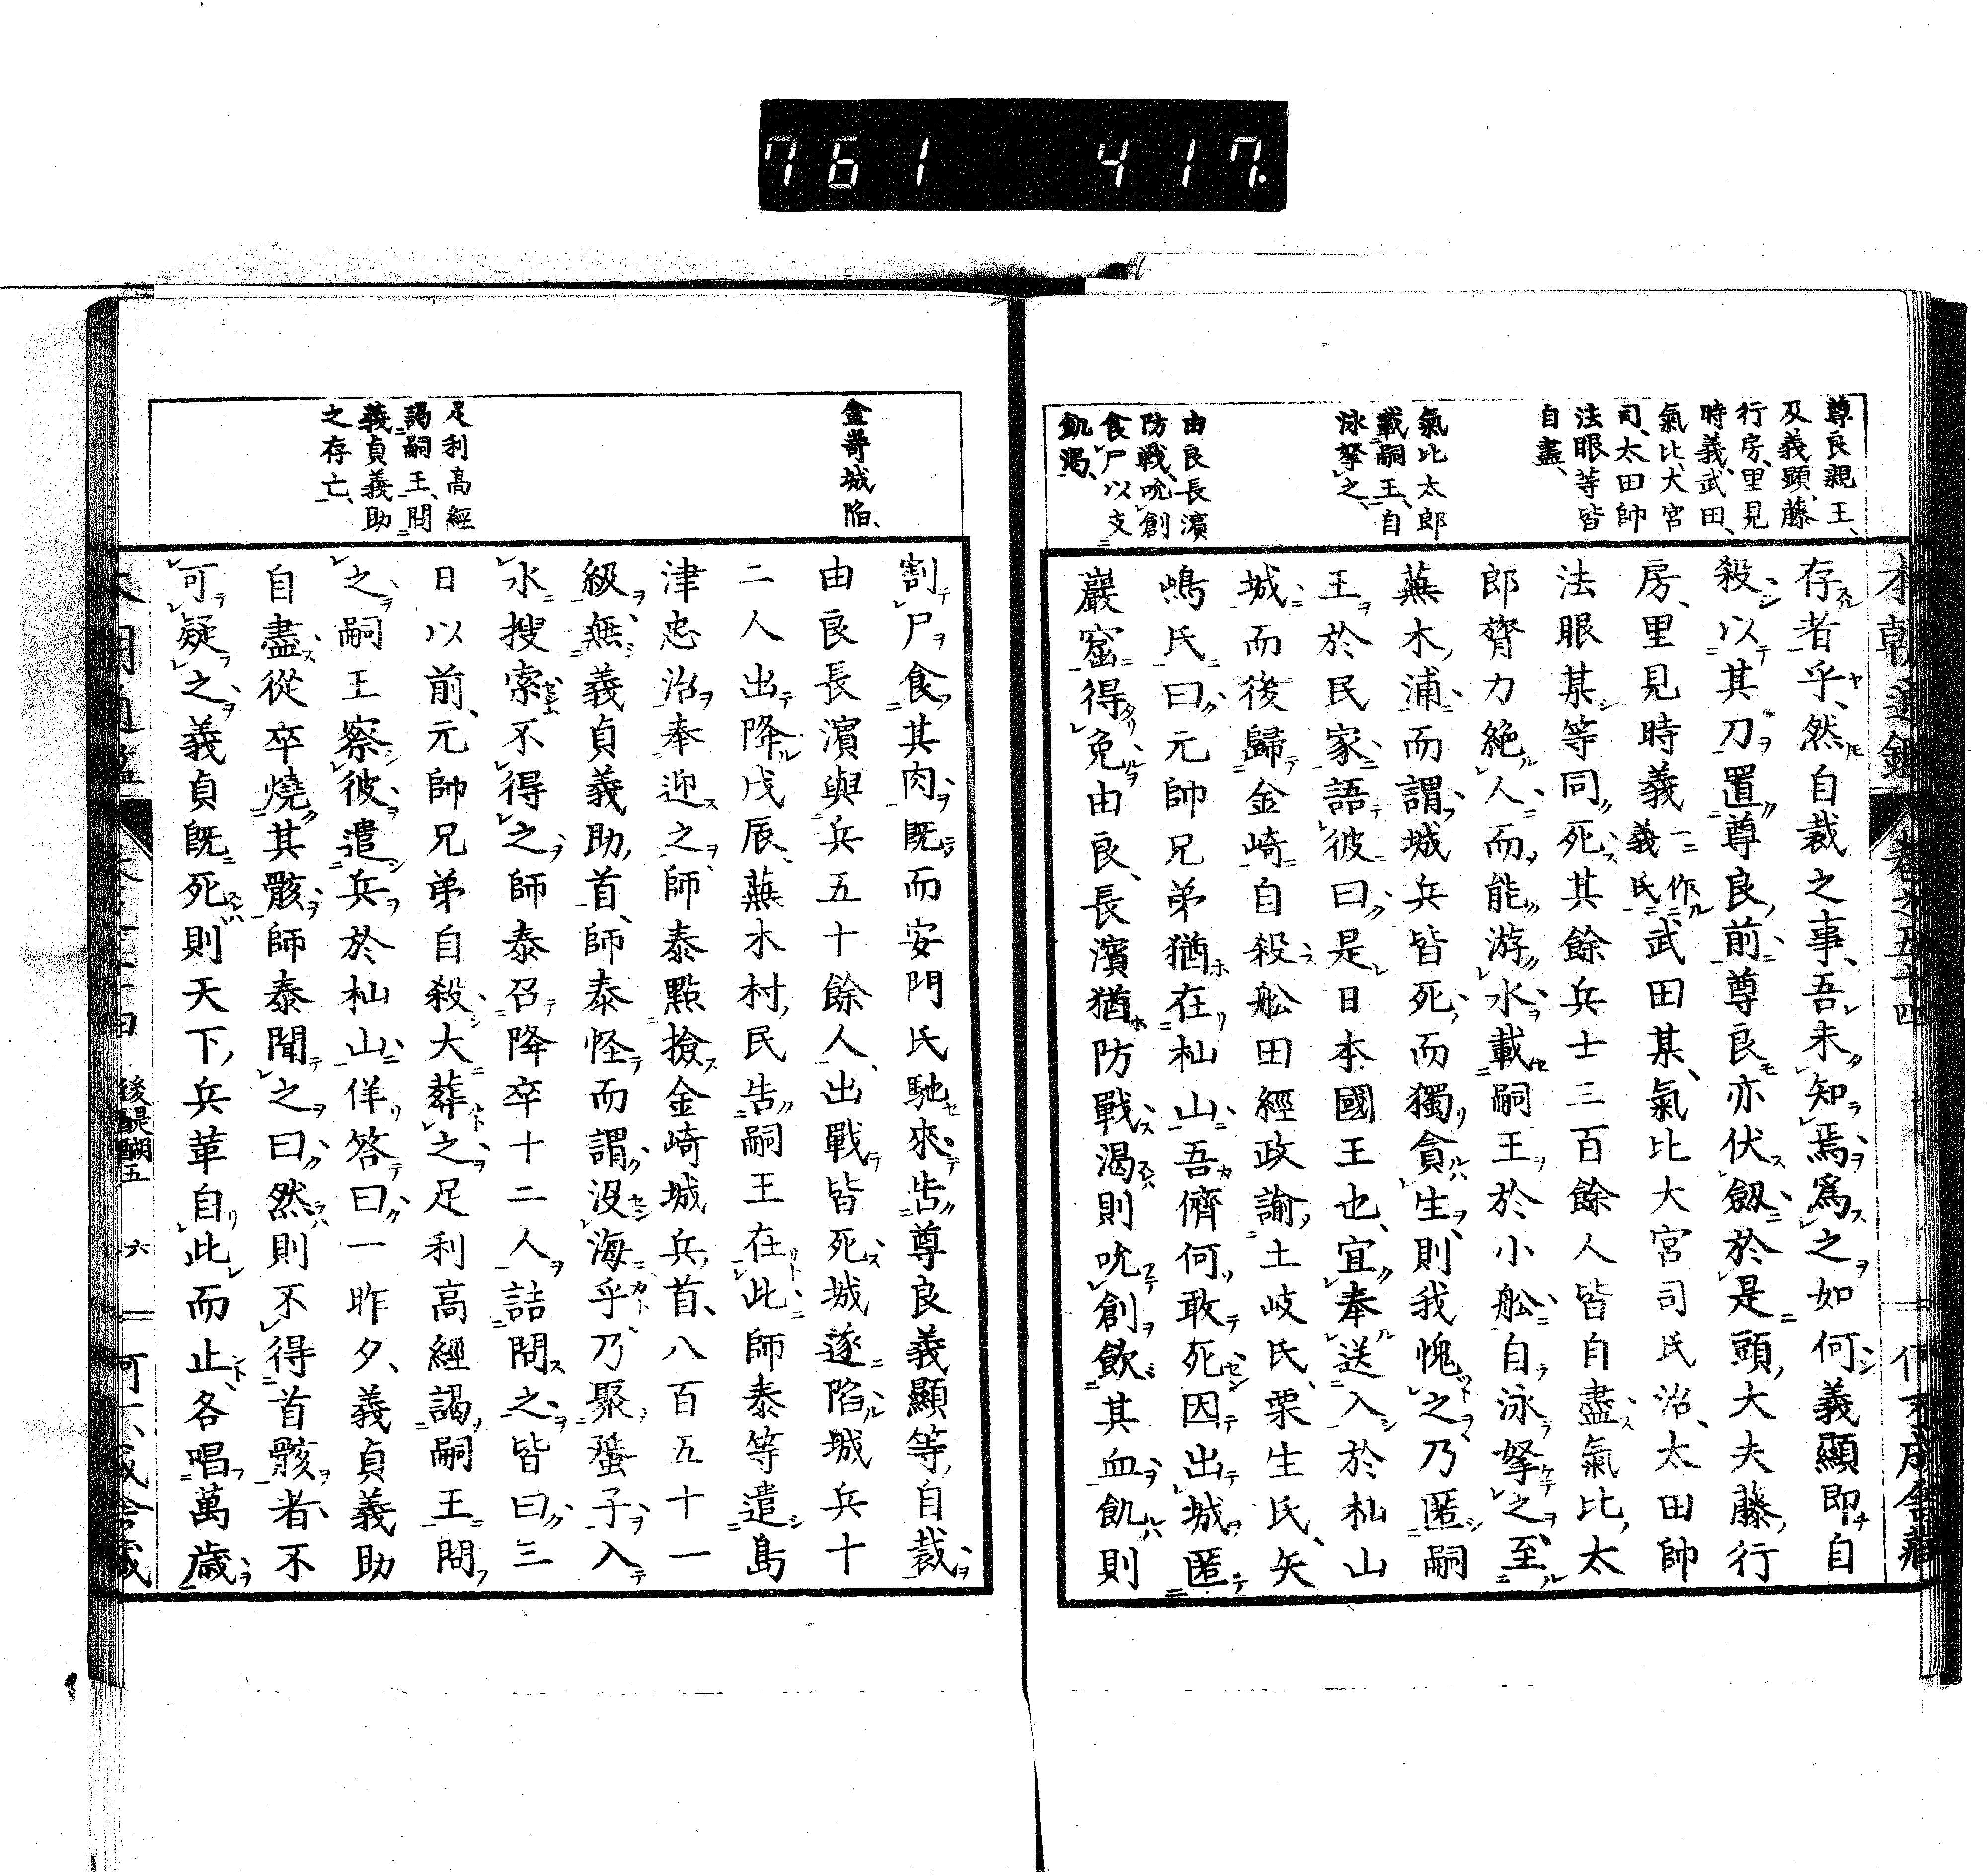 761 417.
本朝通鑑 卷之五十四
尊良親王、
及義顯、藤
行房、里見
時義、武田、
氣比、大宮
司、太田帥
法眼等皆
自盡、
氣比太郎
載嗣王、自
泳拏之、
由良長濱
防戰、吮創
食尸以支
飢渇、
存者乎、然自裁之事、吾未知焉爲之如何義顯即自
殺、以其刀置尊良前、尊良亦伏劔於是頭大夫藤行
房、里見時義一作義氏武田某、氣比大宮司氏治、太田帥
法眼某等同死、其餘兵士三百餘人皆自盡氣比太
郎膂力絶人而能游水載嗣王於小舩自泳拏之至
蕪木浦而謂城兵皆死而獨貪生、則我愧之乃匿嗣
王於民家、語彼曰、是日本國王也、宜奉送入於杣山
城而後歸金崎自殺舩田經政諭土岐氏、栗生氏、矢
嶋氏曰、元帥兄弟猶在杣山、吾儕何敢死因出城匿
巖窟得免由良、長濱猶防戰、渇則吮創飲其血、飢則
金嵜城陷、
足利高經
謁嗣王、問
義貞義助
之存亡、
割尸食其肉、既而安門氏馳來、告尊良義顯等自裁
由良長濱與兵五十餘人、出戰皆死城遂陷城兵十
二人出降、戊辰、蕪木村民告嗣王在此師泰等遣島
津忠治奉迎之、師泰點撿金崎城兵首、八百五十一
級、無義貞義助首、師泰怪而謂、沒海乎乃聚蜑子、入
水搜索不得之、師泰召降卒十二人、詰問之、皆曰、三
日以前、元帥兄弟自殺、大葬之、足利高經謁嗣王問
之、嗣王察彼遣兵於杣山、佯答曰、一昨夕、義貞義助
自盡、從卒燒其骸、師泰聞之曰、然則不得首骸者、不
可疑之、義貞既死則天下兵革自此而止、各唱萬歳、
後醍醐五 六